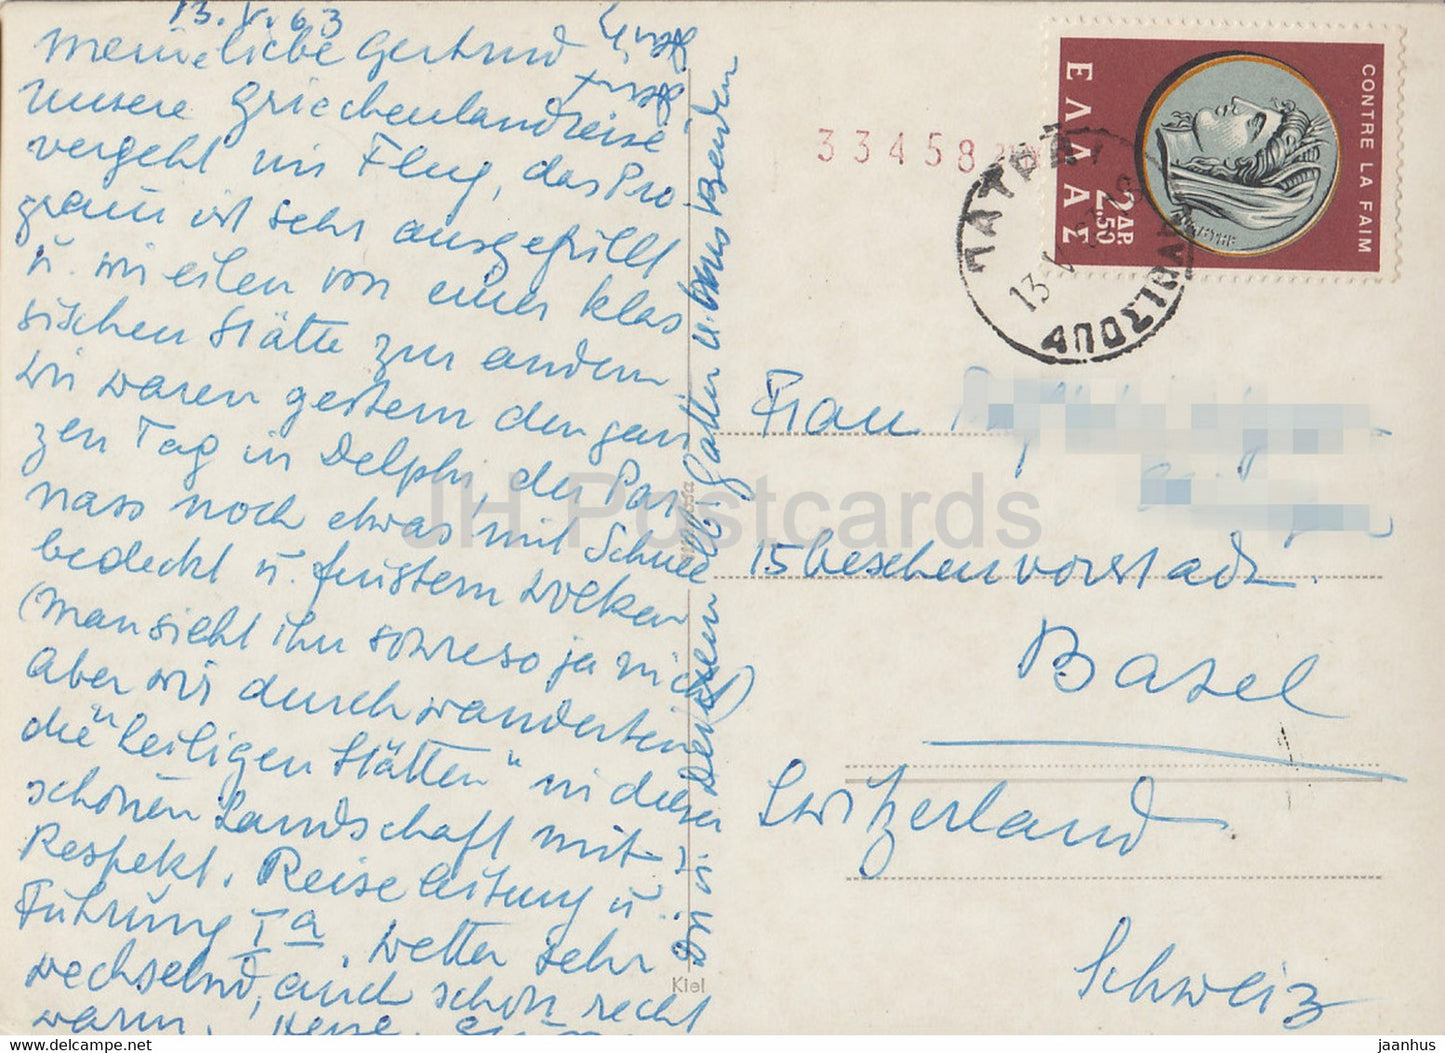 13. V. 63
Meine liebe Gertrud
unsere Griechenlandreise
vergeht im Flug, das Pro
gram ist sehr ausgefüllt
u. wir eilen von einer klas
sischen Stätte zur andern
wir waren gestern den gan
zen Tag in Delphi, der Par
nass noch etwas mit Schnee
bedeckt u. finstern Wolken
(man sieht ihn sowieso ja nicht)
Aber wir durchwanderten
die "heiligen Stätten" in dieser
schönen Landschaft mit
Respekt. Reiseleitung u.
Führung Ia. Wetter sehr
wechselnd, auch schon recht
warm.
Götter u.
Kiel
33458
ΕΛΛΑΣ
2.50
ΔΡ.
CONTRE LA FAIM
ΠΑΤΡΑΙ
13 V
Frau
15 Aeschenvorstadt.
Basel
Switzerland
Schweiz
JH Postcards
www.delcampe.net
jaanhus